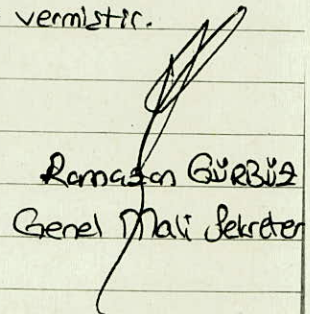 vermiştir.
Ramazan GÜRBÜZ
Genel Mali Sekreter